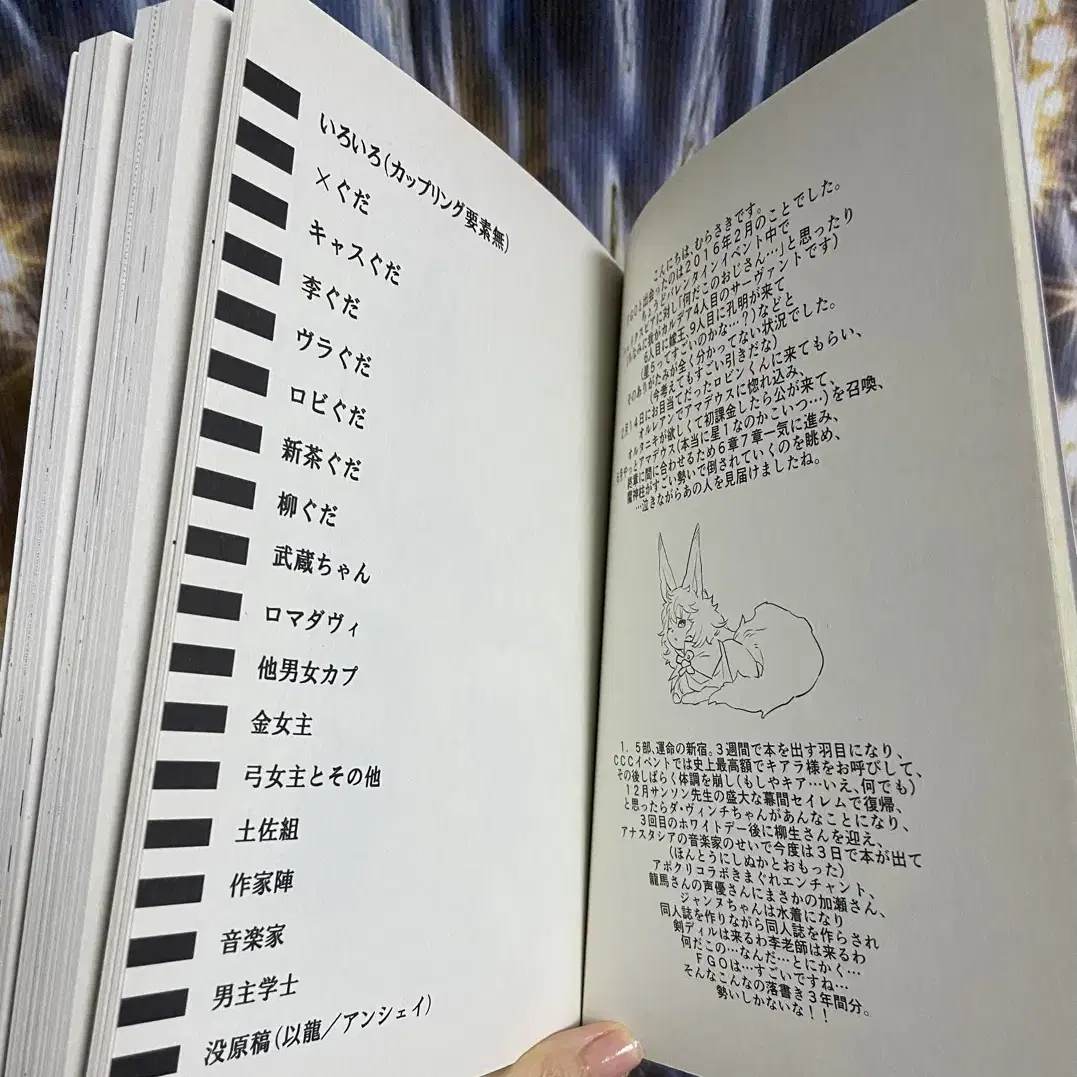 いろいろ(カップリング要素無)
×ぐだ
キャスぐだ
李ぐだ
ヴラぐだ
ロビぐだ
新茶ぐだ
柳ぐだ
武蔵ちゃん
ロマダヴィ
他男女カプ
金女主
弓女主とその他
土佐組
作家陣
音楽家
男主学士
没原稿(以龍/アンシェイ)
こんにちは、むらさきです。
FGOと出会ったのは2016年2月のことでした。
ちょうどバレンタインイベント中で
対し「何だこのおじさん…」と思ったり
我がカルデア4人目のサーヴァントです)
6人目に嫁王、9人目に孔明が来て
(星5ってすごいのかな…?)などと
そのありがたみが全く分かってない状況でした。
(今考えてもすごい引きだな)
2月14日にお目当てだったロビンくんに来てもらい、
オルレアンでアマデウスに惚れ込み、
オルタニキが欲しくて初課金したら公が来て、
やっとアマデウス(本当に星1なのかこいつ…)を召喚、
終章に間に合わせるため6章7章一気に進み、
魔神柱がすごい勢いで倒されていくのを眺め、
…泣きながらあの人を見届けましたね。
1.5部、運命の新宿。3週間で本を出す羽目になり、
CCCイベントでは史上最高額でキアラ様をお呼びして、
その後しばらく体調を崩し(もしやキア…いえ、何でも)
12月サンソン先生の盛大な幕間セイレムで復帰、
と思ったらダ・ヴィンチちゃんがあんなことになり、
3回目のホワイトデー後に柳生さんを迎え、
アナスタシアの音楽家のせいで今度は3日で本が出て
(ほんとうにしぬかとおもった)
アポクリコラボきまぐれエンチャント、
龍馬さんの声優さんにまさかの加瀬さん、
ジャンヌちゃんは水着になり
同人誌を作りながら同人誌を作らされ
剣ディルは来るわ李老師は来るわ
何だこの…なんだ…とにかく…
FGOは…すごいですね…
そんなこんなの落書き3年間分。
勢いしかないな!!